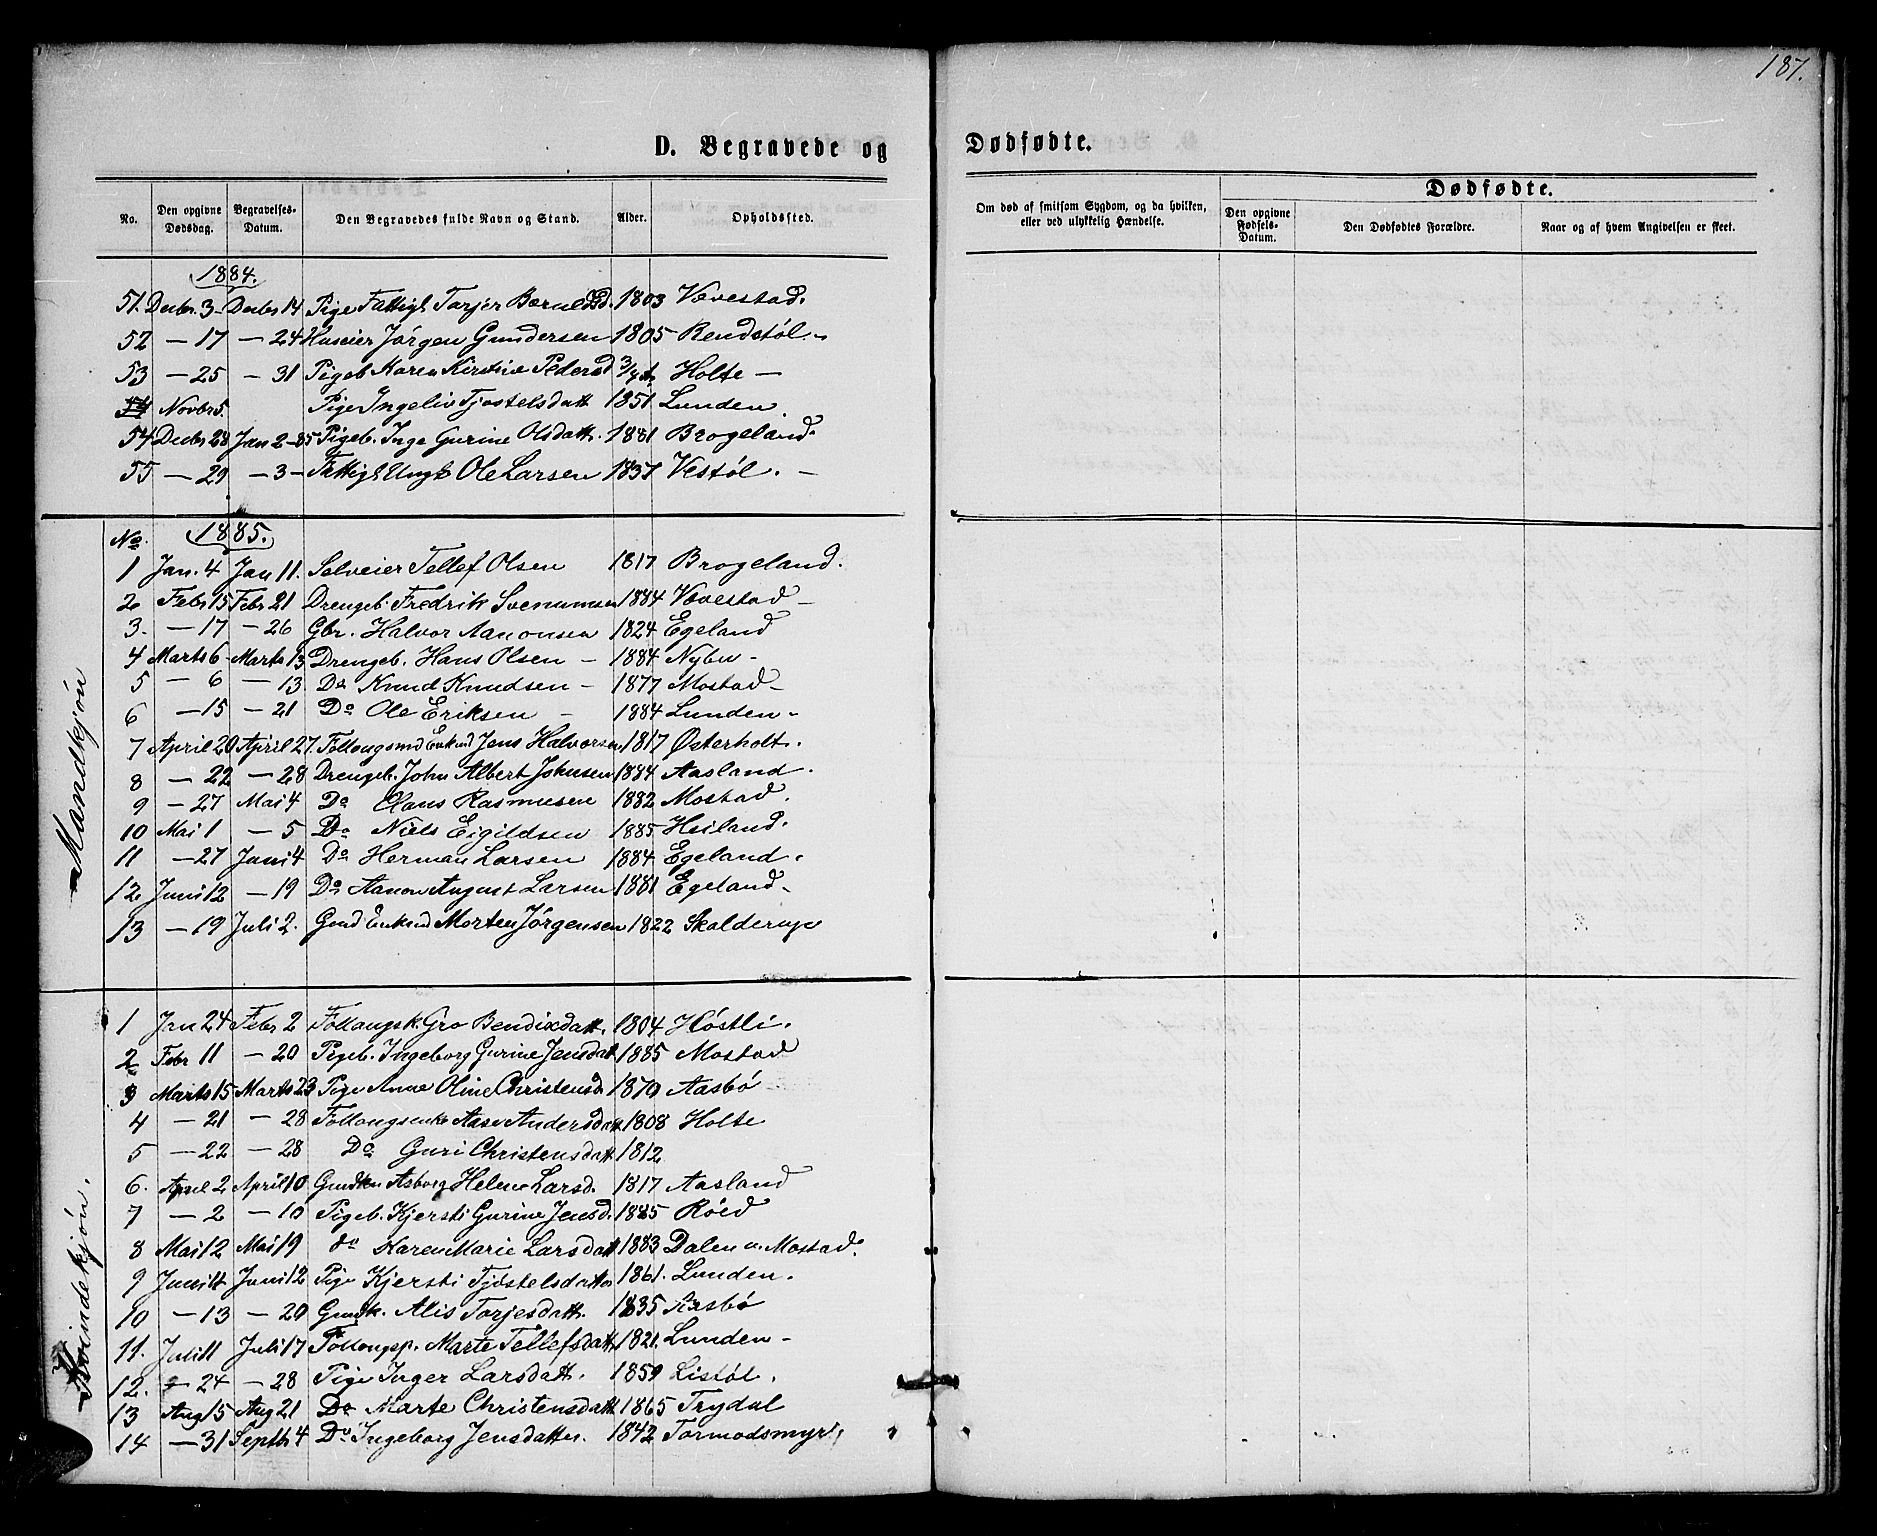 187.
D. Begravede og Dødfødte.
No.
Den opgivne Dødsdag.
Begravelses-Datum.
Den Begravedes fulde Navn og Stand.
Alder.
Opholdssted.
Om død af smitsom Sygdom, og da hvilken, eller ved ulykkelig Hændelse.
Dødfødte.
Den opgivne Fødsels-Datum.
Den Dødfødtes Forældre.
Naar og af hvem Angivelsen er skeet.
1884.
51. Decbr. 3 - Decbr 14 Pige Fattigl Tarjer 1803 Vævestad.
52 — 17 — 24 Huseier Jørgen Gundersen 1805 Rendstøl. -
53 — 25 — 31 Pigeb Karen Kirstine Pedersd 3/4 Holte —
54 Novbr 5. Pige Ingeliv Tjostelsdatt 1851 Lunden.
54 Decbr 28 Jan 2-85 Pigeb. Inge Gurine Olsdatt. 1881 Brogeland.
55 — 29 — 3 — Fattigl Ungk Ole Larsen 1837 Vestøl. —
Mandkjøn
No. 1885.
1 Jan. 4 Jan 11. Selveier Tellef Olsen 1817 Brogeland.
2 Febr 15 Febr 21 Drengeb. Fredrik 1884 Vævestad —
3. — 17 — 26 Gbr. Halvor Aanonsen 1824 Egeland
4 Marts 6 - Marts 13 Drengeb. Hans Olsen — 1884 Nybu -
5 — 6 — 13 Do Knud Knudsen — 1877 Mostad -
6 — 15 — 21 Do Ole Eriksen — 1884 Lunden -
7 April 20 April 27. Føllougsmd Enkmd Jens Halvorsen 1817 Østerholt.
8 — 22 — 28 Drengeb. John Albert Johnsen 1884 Aasland.
9 — 27 Mai 4 Do Claus Rasmusen 1882 Mostad.
10 Mai 1 — 5 Do Niels Eigildsen 1885 Heiland.
11 — 27 Juni 4 Do Herman Larsen 1884 Egeland.
12 Juni 12 — 19 Do Aanon August Larsen 1881 Egeland -
13 — 19 Juli 2. Gmd Enkmd Morten Jørgensen 1822 Skalderup
Kvindekjøn.
1 Jan 24 Febr 2 Føllougsk. Gro Bendixdatt. 1804 Høstli.
2 Febr 11 — 20 Pigeb. Ingeborg Gurine Jensdatt 1885 Mostad
3 Marts 15 Marts 23 Pige Anne Oline Christensd 1870 Aasbø
4 — 21 — 28 Føllougsenke Aase Andersdatt 1808 Holte
5 — 22 — 28 Do Guri Christensdatt 1812
6. April 2 April 10 Gmdkn Asborg Helene Larsd. 1817 Aasland
7 — 2 — 10 Pigeb. Kjersti Gurine Jensd. 1885 Røed
8 Mai 12 Mai 19 do Karen Marie Larsdatt 1883 Dalen u. Mostad.
9 Juni 4 Juni 12 Pige Kjersti Tjøstelsdatter 1861. Lunden.
10 — 13 — 20 Gmdk. Alis Torjesdatt. 1835 Aasbø
11. Juli 11 Juli 17 Føllougsp. Marte Tellefsdatt. 1821 Lunden -
12. — 24 — 28 Pige Inger Larsdatt. 1859 Listøl.
13 Aug 15 Aug 21 Do Marte Christensdatt 1865 Trydal
14 — 31 Septbr 4 Do Ingeborg Jensdatter. 1842 Tormodsmyr.